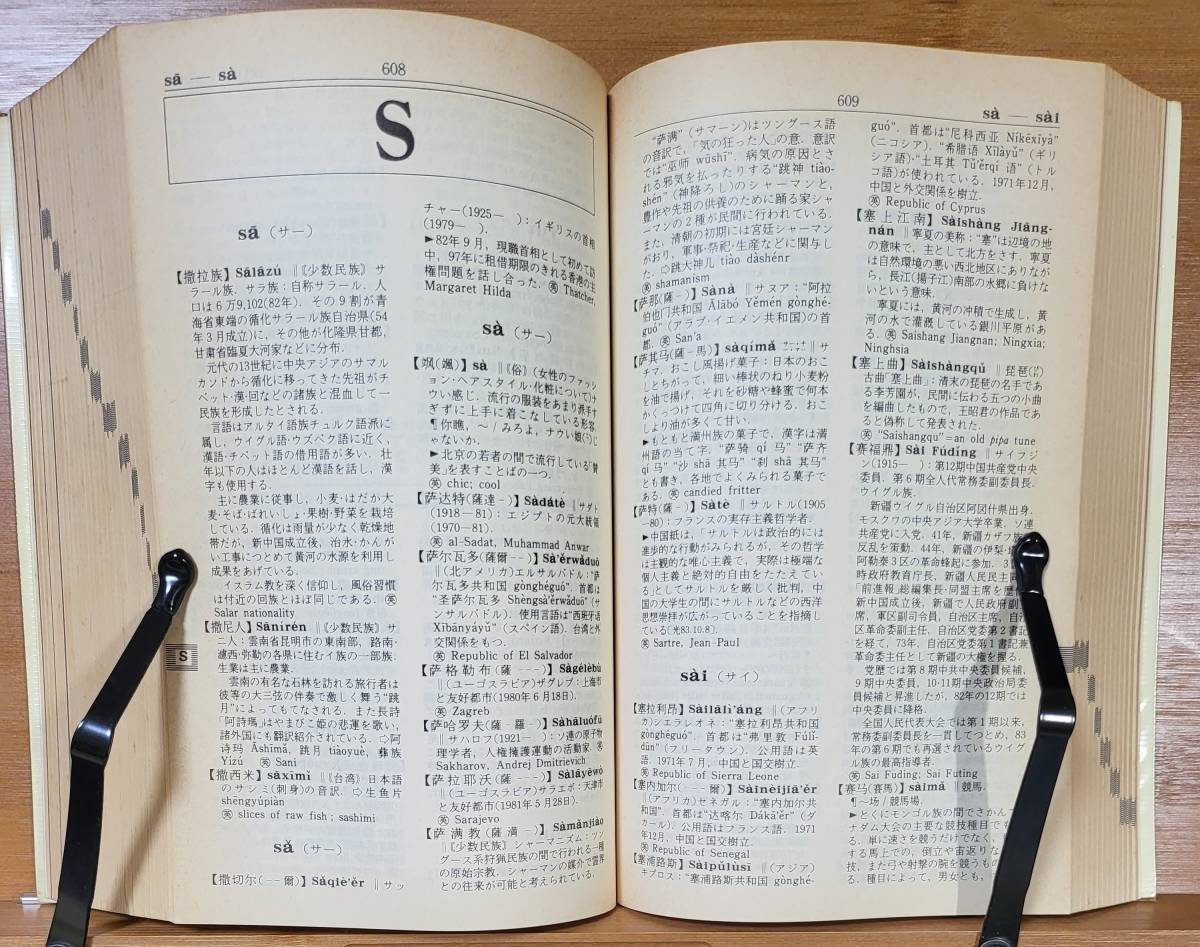 sā — sà
608
S
sā (サー)
【撒拉族】Sālāzú ‖《少数民族》サ
ラール族．サラ族：自称サラール．人
口は6万9,102(82年)．その9割が青
海省東端の循化サラール族自治県(54
年3月成立)に，その他が化隆県甘都，
甘粛省臨夏大河家などに分布．
元代の13世紀に中央アジアのサマル
カンドから循化に移ってきた先祖がチ
ベット·漢·回などの諸族と混血して一
民族を形成したとされる．
言語はアルタイ語族チュルク語派に
属し，ウイグル語·ウズベク語に近く，
漢語·チベット語の借用語が多い．壮
年以下の人はほとんど漢語を話し，漢
字も使用する．
主に農業に従事し，小麦·はだか大
麦·そば·ばれいしょ·果樹·野菜を栽培
している．循化は雨量が少なく乾燥地
帯だが，新中国成立後，治水·かんが
い工事につとめて黄河の水源を利用し
成果をあげている．
イスラム教を深く信仰し，風俗習慣
は付近の回族とほぼ同じである．㊇
Salar nationality
【撒尼人】Sānírén ‖《少数民族》サ
ニ人：雲南省昆明市の東南部，路南·
濾西·弥勒の各県に住むイ族の一部族．
生業は主に農業．
雲南の有名な石林を訪れる旅行者は
彼等の大三弦の伴奏で激しく舞う“跳
月”によってもてなされる．また長詩
「阿詩瑪」はやまびこ姫の悲運を歌い，
諸外国にも翻訳紹介されている．⇨阿
诗玛 Āshīmǎ，跳月 tiàoyuè，彝族
Yízú ㊇ Sani
【撒西米】sāxīmǐ ‖《台湾》日本語
のサシミ(刺身)の音訳．⇨生鱼片
shēngyúpiàn
㊇ slices of raw fish ; sashimi
sǎ (サー)
【撒切尔(——爾)】Sǎqiè'ěr ‖サッ
チャー(1925—　)：イギリスの首相
(1979—　)．
►82年9月，現職首相として初めて訪
中，97年に租借期限のきれる香港の主
権問題を話し合った．㊇ Thatcher,
Margaret Hilda
sà (サー)
【飒(颯)】sà ‖《俗》(女性のファッシ
ョン·ヘアスタイル·化粧について)ナ
ウい感じ．流行の服装をあまり派手す
ぎずに上手に着こなしている形容．
¶你瞧，～/みろよ，ナウい娘(こ)じ
ゃないか．
►北京の若者の間で流行している「賛
美」を表すことばの一つ．
㊇ chic; cool
【萨达特(薩達－)】Sàdátè ‖サダト
(1918—81)：エジプトの元大統領
(1970—81)．
㊇ al-Sadat, Muhammad Anwar
【萨尔瓦多(薩爾——)】Sà'ěrwǎduō
‖(北アメリカ)エルサルバドル：“萨
尔瓦多共和国 gònghéguó”．首都は
“圣萨尔瓦多 Shèngsà'ěrwǎduō”(サ
ンサルバドル)．使用言語は“西班牙语
Xībānyáyǔ”(スペイン語)．台湾と外
交関係をもつ．
㊇ Republic of El Salvador
【萨格勒布(薩———)】Sàgélèbù
‖(ユーゴスラビア)ザグレブ：上海市
と友好都市(1980年6月18日)．
㊇ Zagreb
【萨哈罗夫(薩－羅－)】Sàhāluófū
‖サハロフ(1921—　)：ソ連の原子物
理学者，人権擁護運動の活動家．㊇
Sakharov, Andrej Dmitrievich
【萨拉耶沃(薩———)】Sàlāyēwò
‖(ユーゴスラビア)サラエボ：天津市
と友好都市(1981年5月28日)．
㊇ Sarajevo
【萨满教(薩満－)】Sàmǎnjiào
‖《少数民族》シャーマニズム：ツン
グース系狩猟民族の間で行われる一種
の原始宗教．シャーマンの媒介で霊界
との往来が可能と考えられている．
S
609
sà — sài
“萨满”(サマーン)はツングース語
の音訳で，「気の狂った人」の意．意訳
では“巫师 wūshī”．病気の原因とさ
れる邪気を払ったりする“跳神 tiào-
shén”(神降ろし)のシャーマンと，
豊作や先祖の供養のために踊る家シャ
ーマンの2種が民間に行われている．
また，清朝の初期には宮廷シャーマン
がおり，軍事·祭祀·生産などに関与し
た．⇨跳大神儿 tiào dàshénr
㊇ shamanism
【萨那(薩－)】Sànà ‖サヌア：“阿拉
伯也门共和国 Ālābó Yěmén gònghé-
guó”(アラブ·イエメン共和国)の首
都．㊇ San'a
【萨其马(薩－馬)】sàqímǎ ‖サ
チマ，おこし風揚げ菓子：日本のおこ
しとちがって，細い棒状のねり小麦粉
を油で揚げ，それを砂糖や蜂蜜で何本
かくっつけて四角に切り分ける．おこ
しより油が多くて甘い．
►もともと満州族の菓子で，漢字は満
州語の当て字．“萨骑 qí 马”“萨齐
qí 马”“沙 shā 其马”“刹 shā 其马”
とも書き，各地でよくみられる菓子で
ある．㊇ candied fritter
【萨特(薩－)】Sàtè ‖サルトル(1905
—80)：フランスの実存主義哲学者．
►中国紙は，「サルトルは政治的には
進歩的な行動がみられるが，その哲学
は主観的な唯心主義で，実際は極端な
個人主義と絶対的自由をたたえてい
る」としてサルトルを厳しく批判，中
国の大学生の間にサルトルなどの西洋
思想崇拝が広がっていることを指摘し
ている(光83.10.8)．
㊇ Sartre, Jean-Paul
sài (サイ)
【塞拉利昂】Sàilālì'áng ‖(アフリ
カ)シエラレオネ：“塞拉利昂共和国
gònghéguó”．首都は“弗里敦 Fúlǐ-
dūn”(フリータウン)．公用語は英
語．1971年7月，中国と国交樹立．
㊇ Republic of Sierra Leone
【塞内加尔(———爾)】Sàinèijiā'ěr
‖(アフリカ)セネガル：“塞内加尔共
和国”．首都は“达喀尔 Dákā'ěr”(ダ
カール)．公用語はフランス語．1971
年12月，中国と国交樹立．
㊇ Republic of Senegal
【塞浦路斯】Sàipǔlùsī ‖(アジア)
キプロス：“塞浦路斯共和国 gònghé-
guó”．首都は“尼科西亚 Níkēxīyà”
(ニコシア)．“希腊语 Xīlàyǔ”(ギリ
シア語)·“土耳其 Tǔ'ěrqí 语”(トル
コ語)が使われている．1971年12月，
中国と外交関係を樹立．
㊇ Republic of Cyprus
【塞上江南】Sàishàng Jiāng-
nán ‖寧夏の美称：“塞”は辺境の地
の意味で，主として北方をさす．寧夏
は自然環境の悪い西北地区にありなが
ら，長江(揚子江)南部の水郷に負けな
いという意味．
寧夏には，黄河の沖積で生成し，黄
河の水で灌漑している銀川平原があ
る．㊇ Saishang Jiangnan; Ningxia;
Ninghsia
【塞上曲】Sàishàngqǔ ‖琵琶(びわ)
古曲「塞上曲」：清末の琵琶の名手であ
る李芳園が，民間に伝わる五つの小曲
を編曲したもので，王昭君の作品であ
ると偽称して発表された．
㊇ “Saishangqu”＝an old pipa tune
【赛福鼎】Sài Fúdǐng ‖サイフジ
ン(1915—　)：第12期中国共産党中央
委員．第6期全人代常務委副委員長．
ウイグル族．
新疆ウイグル自治区阿図什県出身．
モスクワの中央アジア大学卒業．ソ連
共産党に入党．41年，新疆カザフ族
反乱を策動．44年，新疆の伊犁·塔
阿勒泰3区の革命蜂起に参加．3
時政府教育庁長，新疆人民民主同
「前進報」総編集長·同盟主席を歴
新中国成立後，新疆で人民政府副
席，軍区副司令員，自治区党委
区革命委副主任，自治区党委第2書記
を経て，73年，自治区党委第1書記兼
革命委主任として新疆の大権を握る．
党歴では第8期中共中央委員候補，
9期中央委員，10-11期中央政治局委
員候補と昇進したが，82年の12期では
中央委員に降格．
全国人民代表大会では第1期以来，
常務委副委員長を一貫してつとめ，83
年の第6期でも再選されているウイグ
ル族の最高指導者．
㊇ Sai Fuding; Sai Futing
【赛马(賽馬)】sàimǎ ‖競馬．
¶～场/競馬場．
►とくにモンゴル族の間でさかんで
ナダム大会の主要な競技種目でも
る．単に速さを競うだけでなく，
する馬上での，倒立や宙返りな
技，また弓や射撃の腕を競うもの
る．種目によって，男女とも，